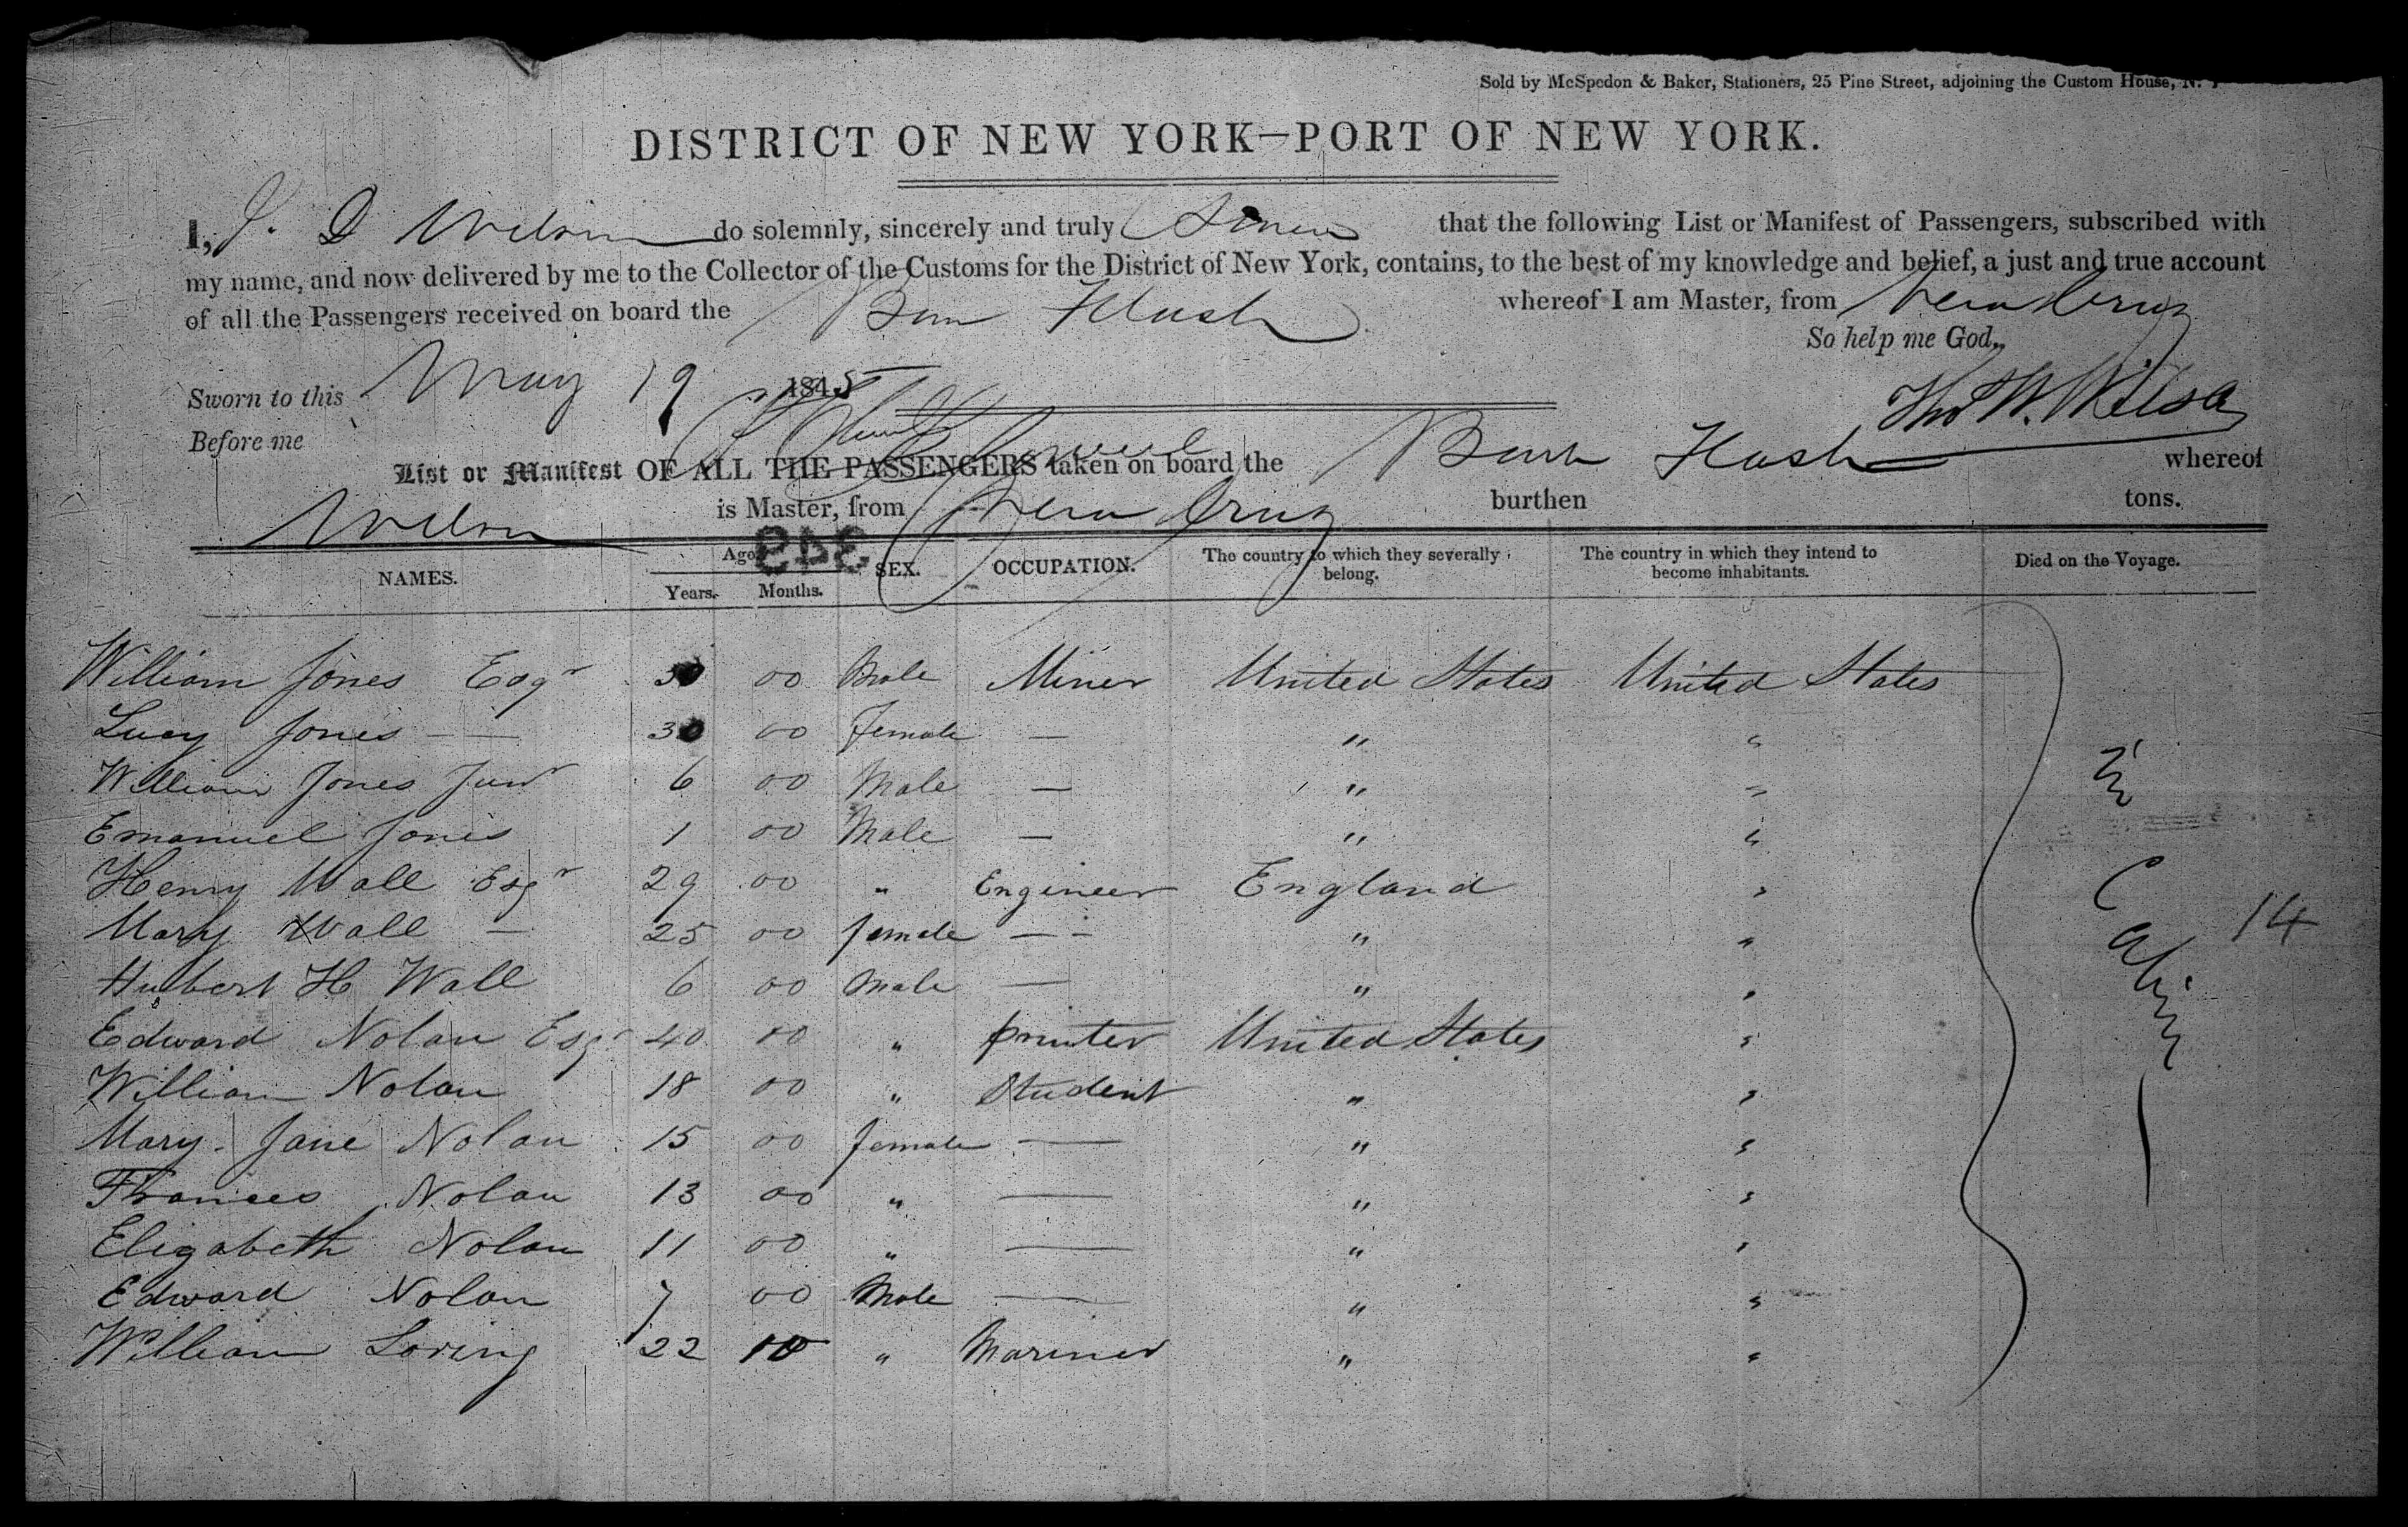 Sold by McSpedon & Baker, Stationers, 25 Pine Street, adjoining the Custom House, N. Y
DISTRICT OF NEW YORK—PORT OF NEW YORK.
I, D Wilson do solemnly, sincerely and truly Swear that the following List or Manifest of Passengers, subscribed with
my name, and now delivered by me to the Collector of the Customs for the District of New York, contains, to the best of my knowledge and belief, a just and true account
of all the Passengers received on board the Bark Flash whereof I am Master, from Vera Cruz
So help me God.
Sworn to this May 19 1845
Thos W. Wilson
Before me
List or Manifest OF ALL THE PASSENGERS taken on board the Bark Flash whereof
Wilson is Master, from Vera Cruz burthen tons.
349
NAMES. Age Years. Months. SEX. OCCUPATION. The country to which they severally belong. The country in which they intend to become inhabitants. Died on the Voyage.
William Jones Esqr 30 00 Male Miner United States United States
Lucy Jones — — 30 00 Female — " "
William Jones Junr 6 00 Male — " "
Emanuel Jones 1 00 Male — " "
Henry Wall Esqr 29 00 " Engineer England "
Mary Wall — 25 00 female — - " "
Hubert H Wall 6 00 Male — " "
Edward Nolan Esqr 40 00 " printer United States "
William Nolan 18 00 " Student " "
Mary Jane Nolan 15 00 female — " "
Frances Nolan 13 00 " — " "
Elizabeth Nolan 11 00 " — " "
Edward Nolan 7 00 Male — " "
William Loring 22 10 " Mariner " "
in Cabin
14